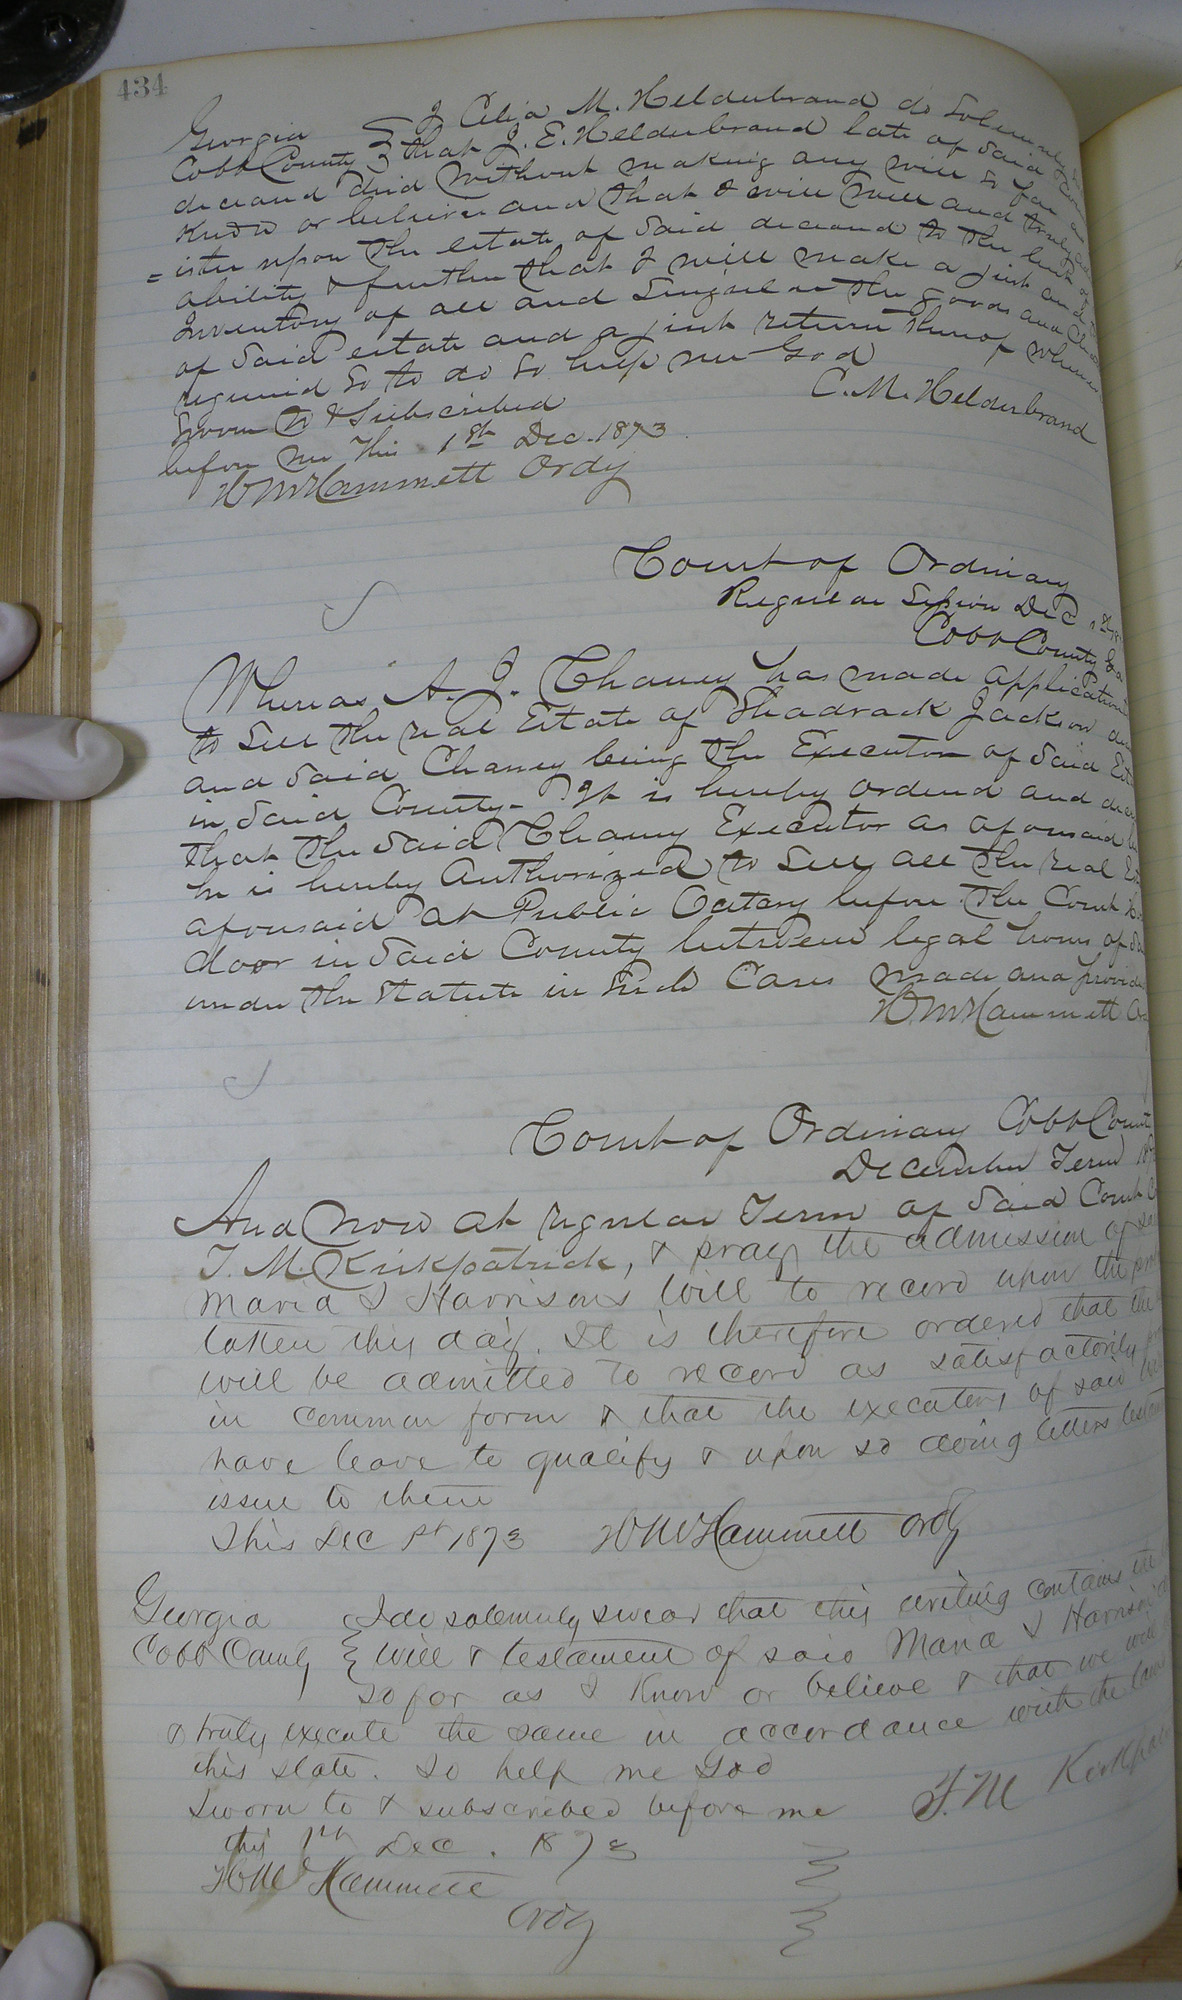 434
Georgia I Celia M. Helderbrand do Solemnly
Cobb County that J. E. Helderbrand late of Said
deceased died without making any will so far
Know or believe and that I will well and truly
= ister upon the estate of Said deceased to the best
ability & further that I will make a just and
Inventory of all and Singular the goods and
of Said estate and a just return thereof when
required So to do So help me God
C. M. Helderbrand
Sworn to & Subscribed
before me this 1st Dec. 1873
W M Hammett Ordy
Court of Ordinary
Regular Session Dec
Cobb County Ga
Whereas A. J. Chaney has made application
to Sell the real Estate of Shadrack Jackson
and Said Chaney being the Executor of Said
in Said County. It is hereby ordered and
that the Said Chaney Executor as aforesaid
he is hereby Authorized to Sell all the real
aforesaid at Public Outary before the Court
door in Said County between legal hours of
under the Statute in Such Cases made and provided
W. M Hammett
Court of Ordinary Cobb County
December Term
And now at regular Term of Said Court
T. M. Kirkpatrick, & prays the admission of
Maria I Harrisons Will to record upon the
taken this day. It is therefore ordered that the
will be admitted to record as satisfactorily
in common form & that the executors of said
have leave to qualify & upon so doing letters
issue to them
This Dec 1st 1873 W M Hammett Ordy
Georgia I do solemnly swear that this writing contains the
Cobb County will & testament of said Maria I Harrison
so far as I Know or believe & that we will
& truly execute the same in accordance with the laws
this state. So help me God
Sworn to & subscribed before me
T. M Kirkpatrick
this 1st Dec. 1873
W M Hammett
Ordy